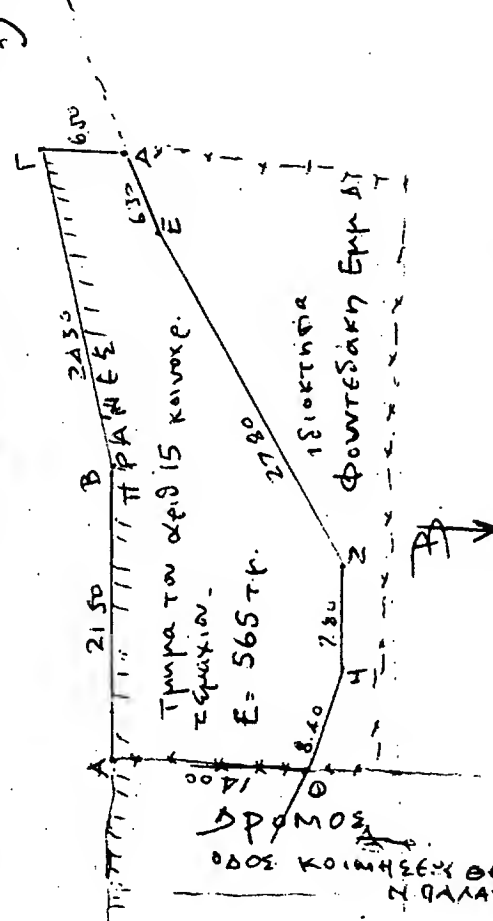 Γ
650
Δ
630
Ε
2430
Β
ΠΡΑΝΕΣ
2150
Α
Τμημα του αριθ 15 κοινοχρ.
τεμαχιου.
Ε= 565 τ.μ.
2780
ιδιοκτησια
Φουντεδάκη Εμμ
Ζ
7.80
Η
8.20
Θ
1400
ΔΡΟΜΟΣ
ΟΔΟΣ ΚΟΙΜΗΣΕΩΣ ΘΕ